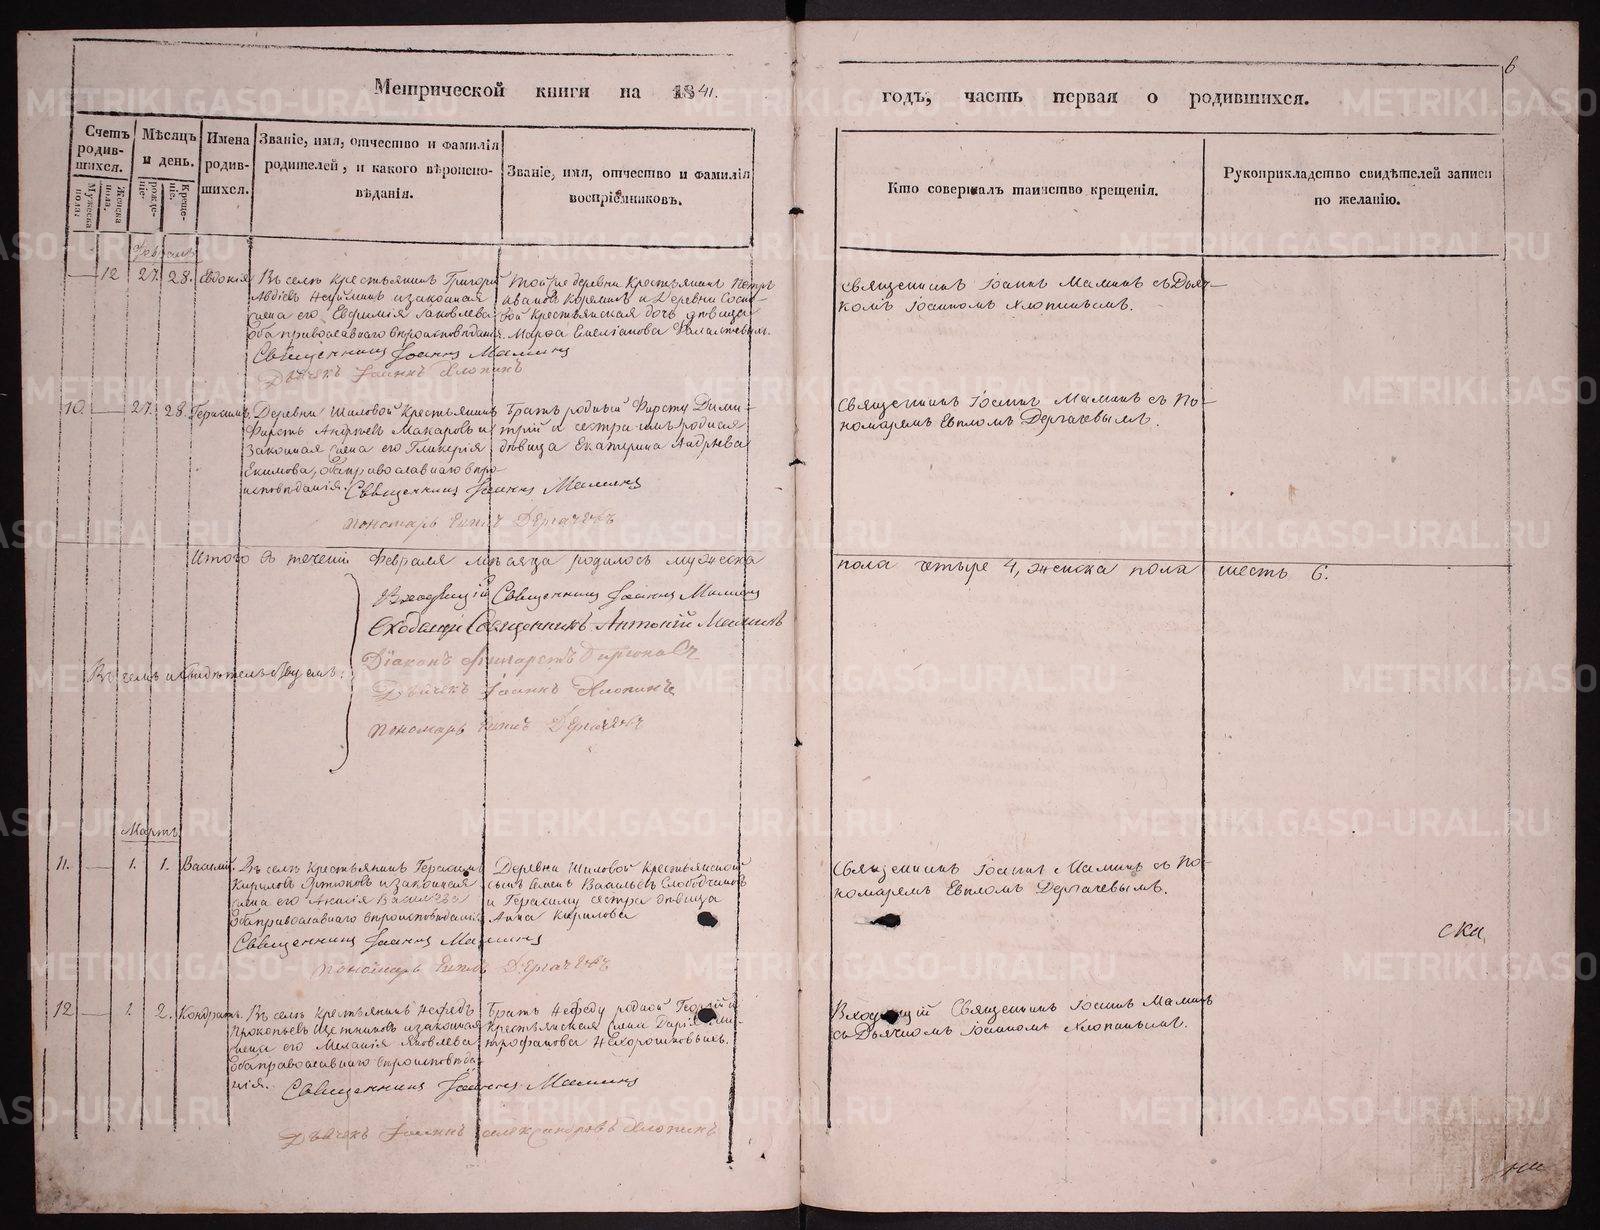 Метрической книги на 1841.
годъ, часть первая о родившихся.
6
Счетъ родив-
шихся.
Мужеска пола.
Женска пола.
Мѣсяцъ
и день.
рожде-
ніе.
Креще-
ніе.
Имена
родив-
шихся.
Званіе, имя, отчество и фамилія
родителей, и какого вѣроиспо-
вѣданія.
Званіе, имя, отчество и фамилія
воспріемниковъ.
Кто совершалъ таинство крещенія.
Рукоприкладство свидѣтелей записи
по желанію.
Февраль
12 27. 28. Евдокія
Въ селѣ крестьянинъ Григорій
Авдіевъ и законная
жена его Евфимія Яковлева
оба православнаго вѣроисповѣданія
Священникъ Іоаннъ Маминъ
Дьячекъ Іоаннъ Хлопинъ
Тойже деревни крестьянинъ Петръ
Ивановъ и деревни Сосно-
вой крестьянская дочь дѣвица
Марѳа Емеліанова
Священникъ Іоаннъ Маминъ съ Дьяч-
комъ Іоанномъ Хлопинымъ.
10. 27. 28. Герасимъ.
Деревни Шиловой крестьянинъ
Фирстъ Андреевъ Макаровъ и
законная жена его Гликерія
Екимова, оба православнаго вѣро
исповѣданія. Священникъ Іоаннъ Маминъ
пономарь Евплъ Дергачевъ
Братъ родный Фирсту Дими-
трій и сестра имъ родная
дѣвица Екатерина Андреева
Священникъ Іоаннъ Маминъ съ По-
номаремъ Евпломъ Дергачевымъ.
Итого въ теченіи Февраля мѣсяца родилось мужеска
пола четыре 4, женска пола шесть 6.
Въ чемъ и свидѣтельствуемъ:
Входящій Священникъ Іоаннъ Маминъ
Сходящій Священникъ Антоній Маминъ
Діаконъ
Дьячекъ Іоаннъ Хлопинъ
пономарь Евплъ Дергачевъ
Мартъ
11. 1. 1. Василій.
Въ селѣ крестьянинъ Герасимъ
Кириловъ и законная
жена его Василіева
оба православнаго вѣроисповѣданія
Священникъ Іоаннъ Маминъ
пономарь Евплъ Дергачевъ
Деревни Шиловой крестьянской
сынъ Семенъ Васильевъ Слободчиковъ
и Герасиму сестра дѣвица
Анна Кирилова
Священникъ Іоаннъ Маминъ съ По-
номаремъ Евпломъ Дергачевымъ.
ска
12 1. 2. Кондратъ.
Въ селѣ крестьянинъ Нефедъ
Прокопьевъ и законная
жена его Меланія Яковлева
оба православнаго вѣроисповѣда-
нія. Священникъ Іоаннъ Маминъ
Дьячекъ Іоаннъ Александровъ Хлопинъ
Братъ Нефеду родной Георгій и
крестьянская жена Дарія Ми-
трофанова Нехорошковыхъ.
Входящій Священникъ Іоаннъ Маминъ
съ Дьячкомъ Іоанномъ Хлопинымъ.
METRIKI.GASO-URAL.RU